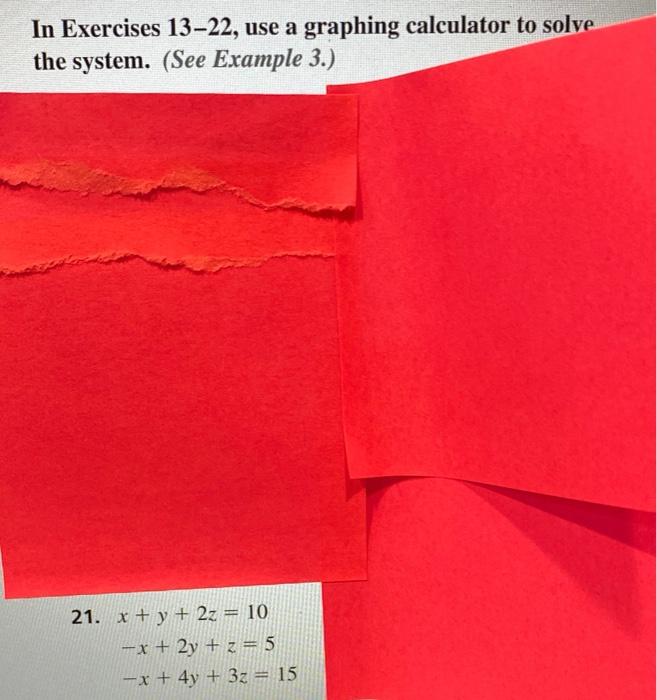 In Exercises 13–22, use a graphing calculator to solve
the system. (See Example 3.)
21. x + y + 2z = 10
−x + 2y + z = 5
−x + 4y + 3z = 15